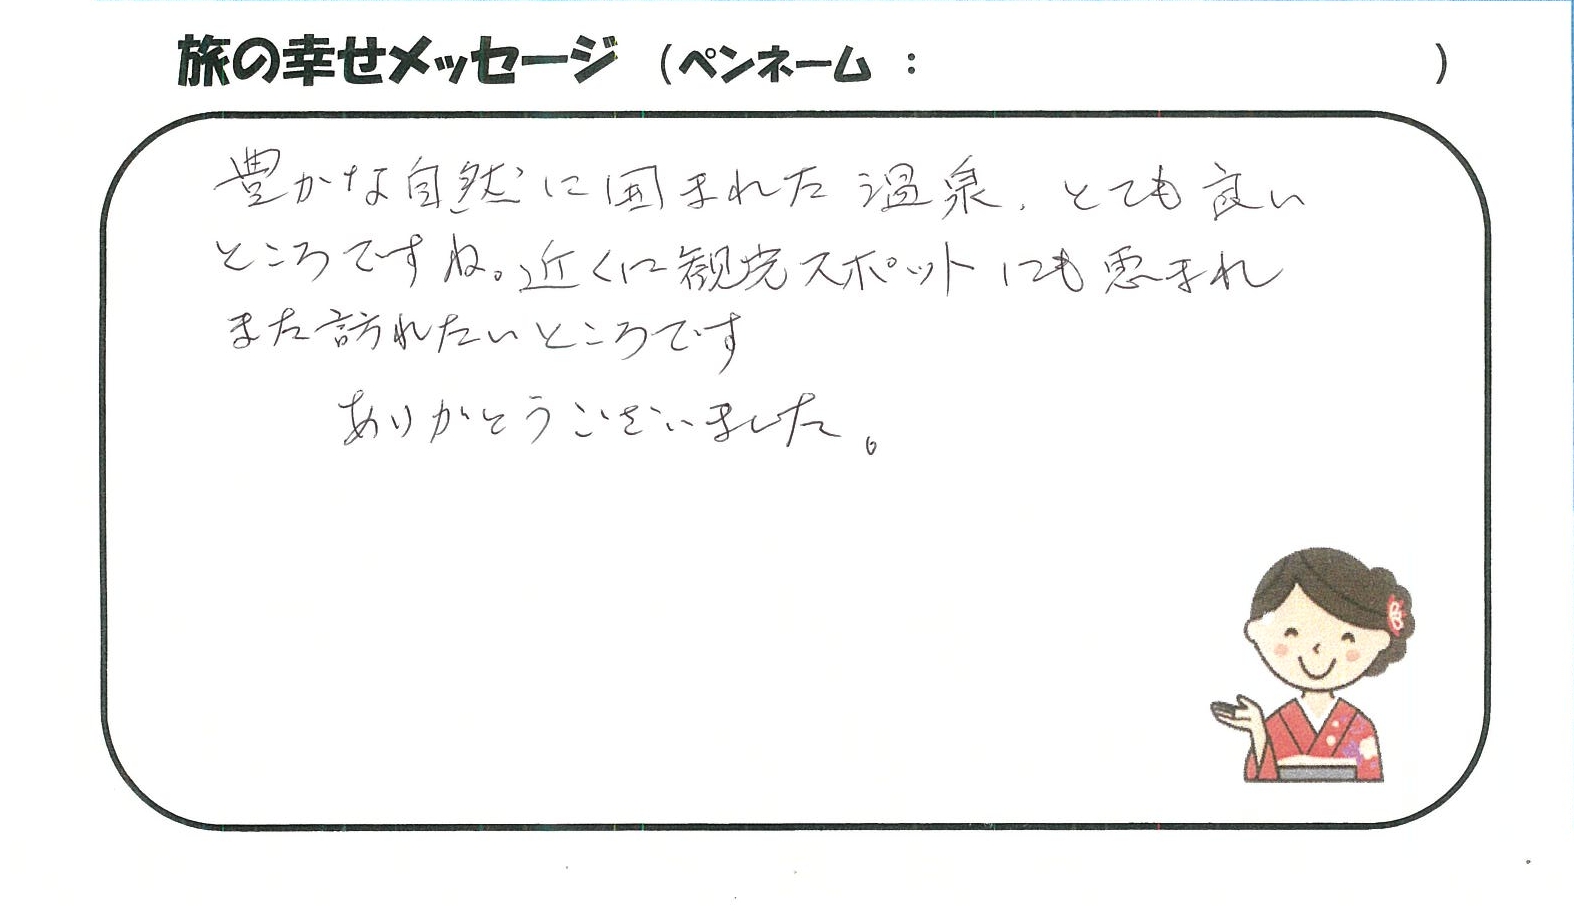 旅の幸せメッセージ （ペンネーム ： ）
豊かな自然に囲まれた温泉、とても良い
ところですね。近くに観光スポットにも恵まれ
また訪れたいところです
ありがとうございました。